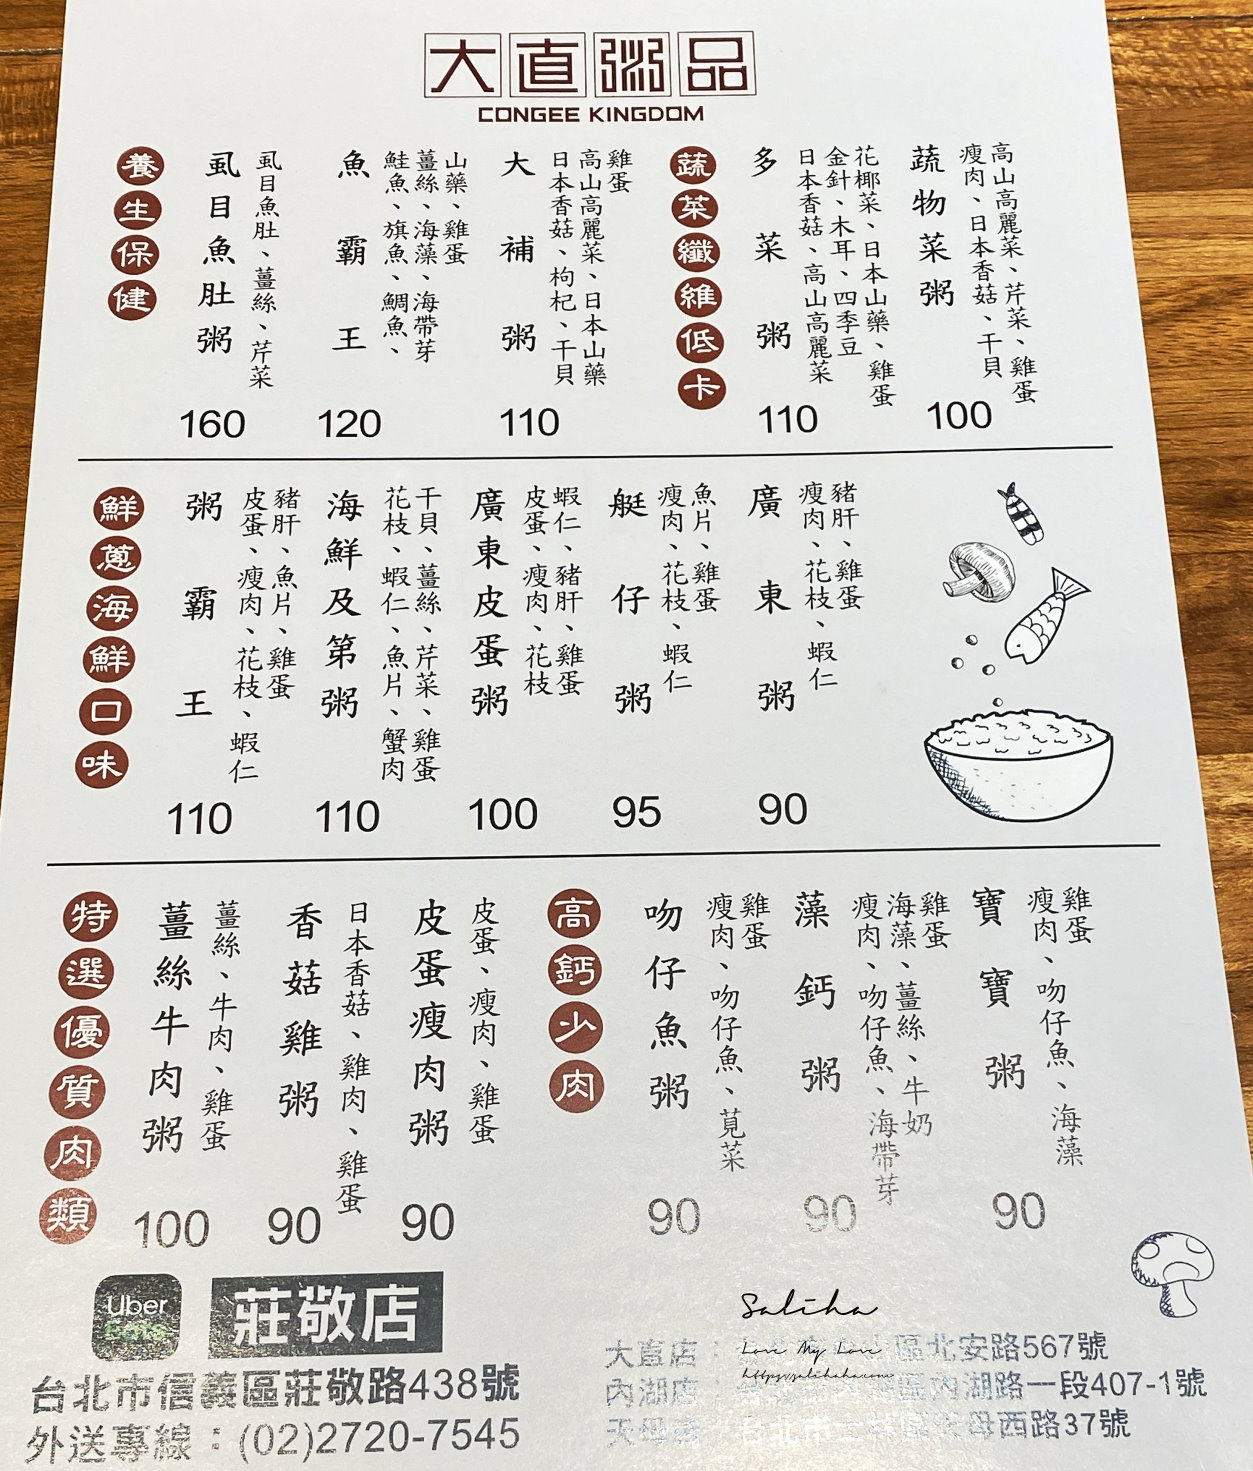 大直粥品
CONGEE KINGDOM
養生保健
虱目魚肚粥
虱目魚肚、薑絲、芹菜
160
魚霸王
鮭魚、旗魚、鯛魚、
薑絲、海藻、海帶芽
山藥、雞蛋
120
大補粥
日本香菇、枸杞、干貝
高山高麗菜、日本山藥
雞蛋
110
蔬菜纖維低卡
多菜粥
日本香菇、高山高麗菜
金針、木耳、四季豆
花椰菜、日本山藥、雞蛋
110
蔬物菜粥
瘦肉、日本香菇、干貝
高山高麗菜、芹菜、雞蛋
100
鮮蔥海鮮口味
粥霸王
皮蛋、瘦肉、花枝、蝦仁
豬肝、魚片、雞蛋
110
海鮮及第粥
花枝、蝦仁、魚片、蟹肉
干貝、薑絲、芹菜、雞蛋
110
廣東皮蛋粥
皮蛋、瘦肉、花枝
蝦仁、豬肝、雞蛋
100
艇仔粥
瘦肉、花枝、蝦仁
魚片、雞蛋
95
廣東粥
瘦肉、花枝、蝦仁
豬肝、雞蛋
90
特選優質肉類
薑絲牛肉粥
薑絲、牛肉、雞蛋
100
香菇雞粥
日本香菇、雞肉、雞蛋
90
皮蛋瘦肉粥
皮蛋、瘦肉、雞蛋
90
高鈣少肉
吻仔魚粥
瘦肉、吻仔魚、莧菜
雞蛋
90
藻鈣粥
瘦肉、吻仔魚、海帶芽
海藻、薑絲、牛奶
雞蛋
90
寶寶粥
瘦肉、吻仔魚、海藻
雞蛋
90
Uber Eats
莊敬店
台北市信義區莊敬路438號
外送專線：(02)2720-7545
Saliha
Love My Love
大直店：區北安路567號
內湖店 區內湖路一段407-1號
天母店 台北市士林區天母西路37號